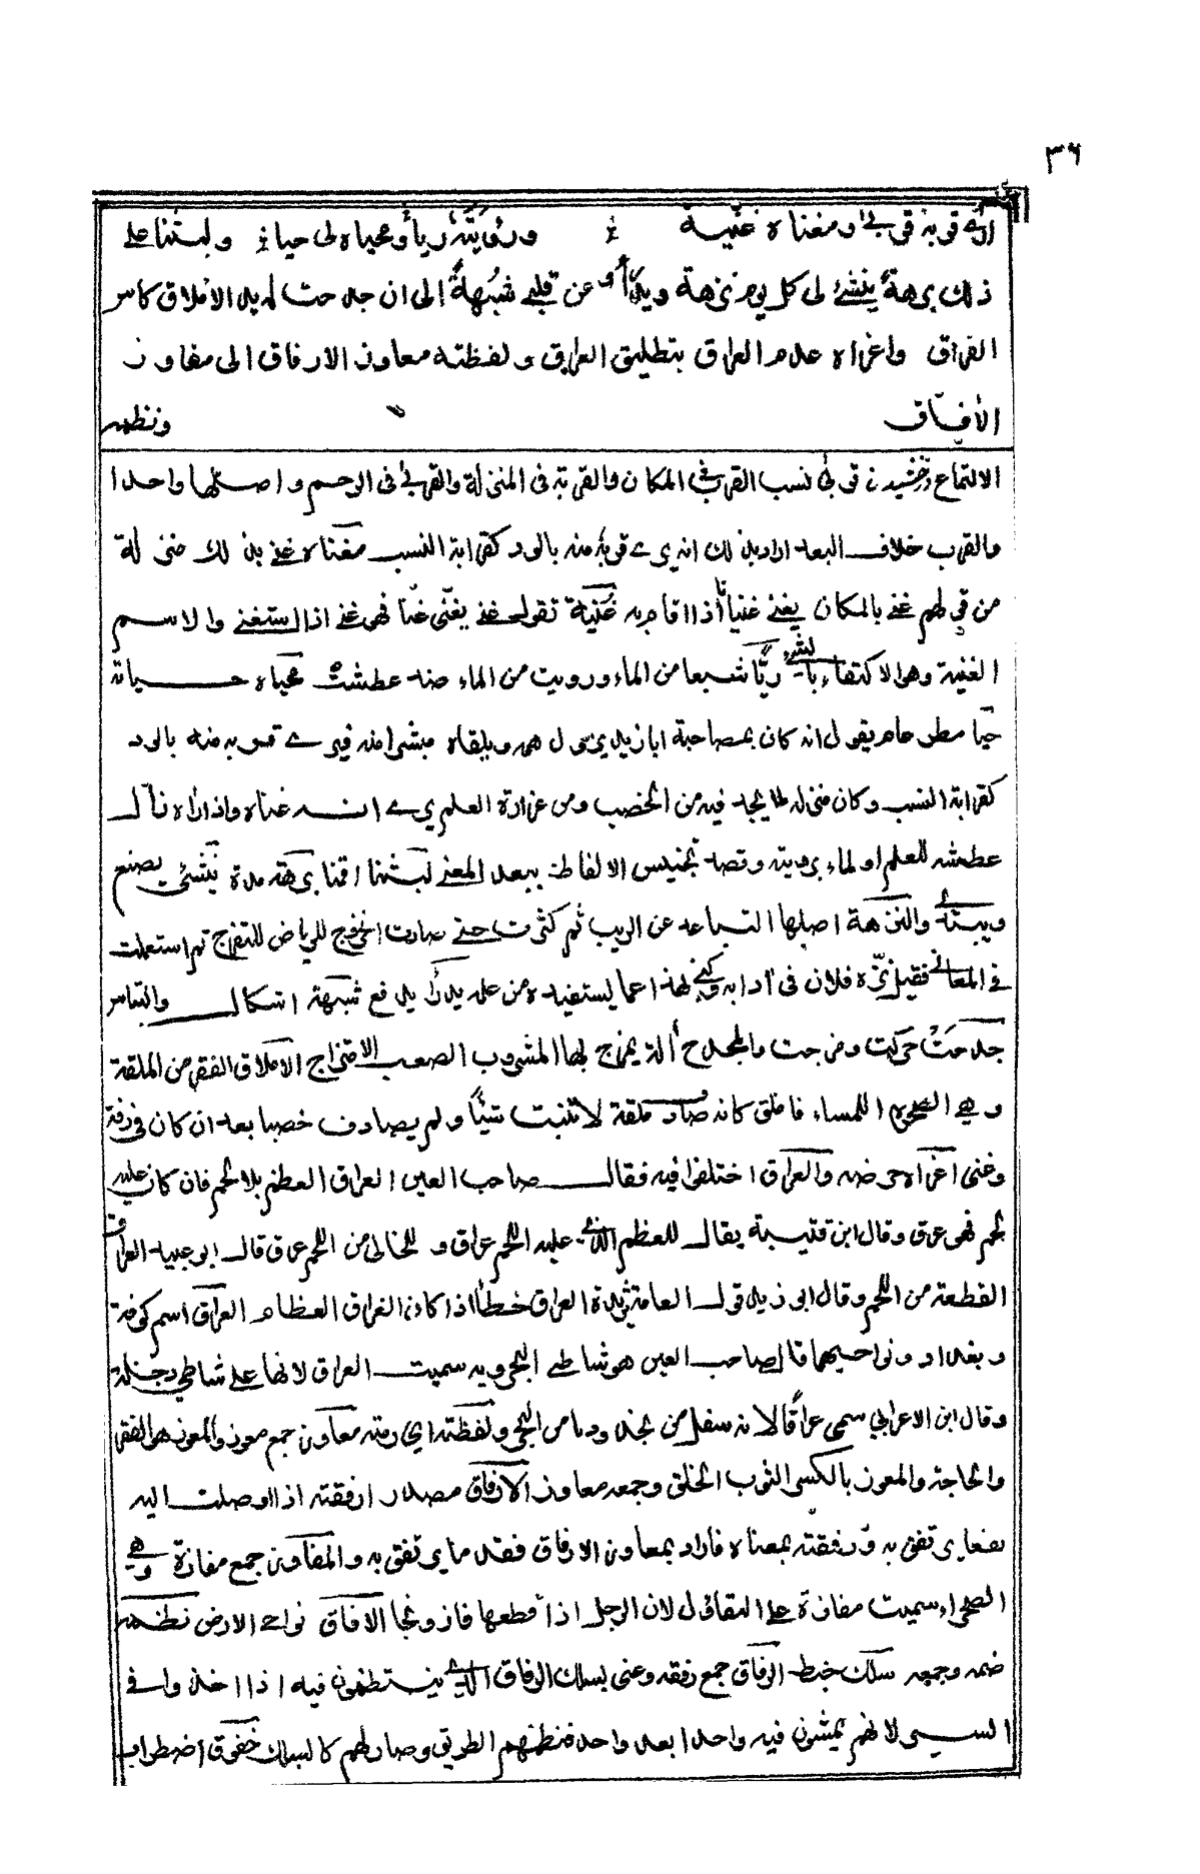 ٣٦
أرى قربه قربى ومغناه غنية ورؤيته ريا ومحياه لي حيا ولبثنا على
ذلك برهة ينشئ لي كل يوم نزهة ويدرأ عن قلبي شبهة إلى ان جدحت له يد الاملاق كاس
الفراق واغراه عدم العراق بتطليق العراق ولفظته معاوز الارفاق الى مفاوز
الآفاق ونظمه
الالتماع قربى نسب القرب في المكان والقربة في المنزلة والقربى في الرحم واصلها واحدا
والقرب خلاف البعد اراد بذلك انه يرى قربه منه بالود كقرابة النسب مغناه عنى بذلك منزله
من قولهم غنى بالمكان يغنى غنيانا اذا اقام به غنية تقول غنى يغنى غنا فهو غنى اذا استغنى والاسم
الغنية وهو الاكتفاء بالشيء ريا شبعا من الماء ورويت من الماء ضد عطشت محياه حياته
حيا مطر عام يقول انه كان بمصاحبة ابا زيد يزول همه وبلقاه مبشرا منه فيرى قربه منه بالود
كقرابة النسب وكان منزله لما يجد فيه من الخصب ومن غزارة العلم يرى انه غناه واذا راه زال
عطشه للعلم او لماء برؤيته وقصد تجنيس الالفاظ ببعد المعنى لبثنا اقمنا برهة مدة ينشئ يصنع
ويبتدئ والنزهة اصلها التباعد عن الريب ثم كثرت حتى صارت الخروج للرياض للتفرج ثم استعملت
في المعاني فقيل نزه فلان في آدابه وكنى بهذا عما يستفيده من علمه يدرأ يدفع شبهة اشكال والتباس
جدحت حركت ومزجت والمجدح آلة يمزج بها المشروب الصعب الامتزاج الاملاق الفقر من الملقة
وهي الصخرة الملساء فاملق كانه صادف ملقة لا تنبت شيئا ولم يصادف خصبا بعد ان كان في رفة
وغنى اغراه حرضه والعراق اختلفوا فيه فقال صاحب العين العراق العظم بلا لحم فان كان عليه
لحم فهو عرق وقال ابن قتيبة يقال للعظم الذي عليه اللحم عراق وللخالي من اللحم عرق قال ابو عبيد العراق
القطعة من اللحم وقال ابو زيد قول العامة ثريدة العراق خطأ اذا كان العراق العظام العراق اسم كوفة
وبغداد ونواحيهما قال صاحب العين هو شاطي البحر وبه سميت العراق لانها على شاطي دجلة
وقال ابن الاعرابي سمى عراقا لانه سفل من نجد ودنا من البحر ولفظته اي رمته معاوز جمع معوز والمعوز هو الفقر
والحاجة والمعوز بالكسر الثوب الخلق وجمعه معاوز الارفاق مصدر ارفقته اذا اوصلت اليه
نفعا يرتفق به ورفقته بمعناه فاراد بمعاوز الارفاق فقد ما يرتفق به والمفاوز جمع مفازة وهي
الصحراء سميت مفازة على التفاؤل لان الرجل اذا قطعها فاز ونجا الافاق نواحي الارض نظمه
ضمه وجمعه سلك خيط الرفاق جمع رفقه وعنى بسلك الرفاق الذي ينتظمون فيه اذا اخذوا في
السير لانهم يمشون فيه واحدا بعد واحد فنظمهم الطريق وصار لهم كالسلك خفوق اضطراب